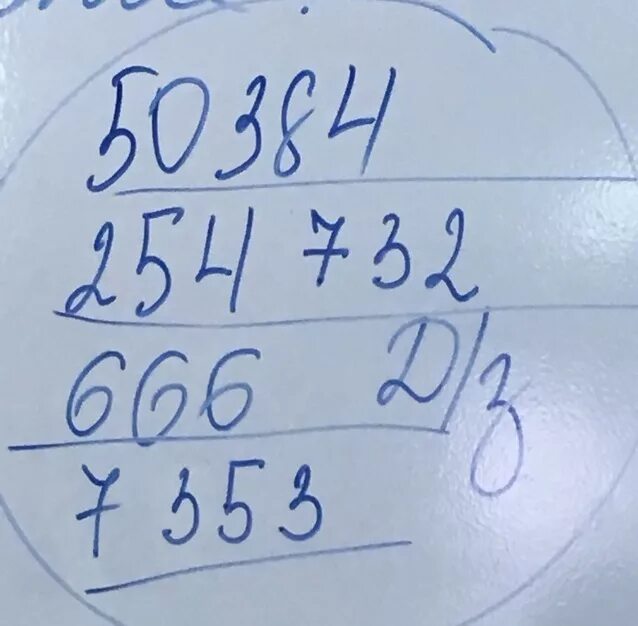 50384
254 732
666 Д/з
7 353